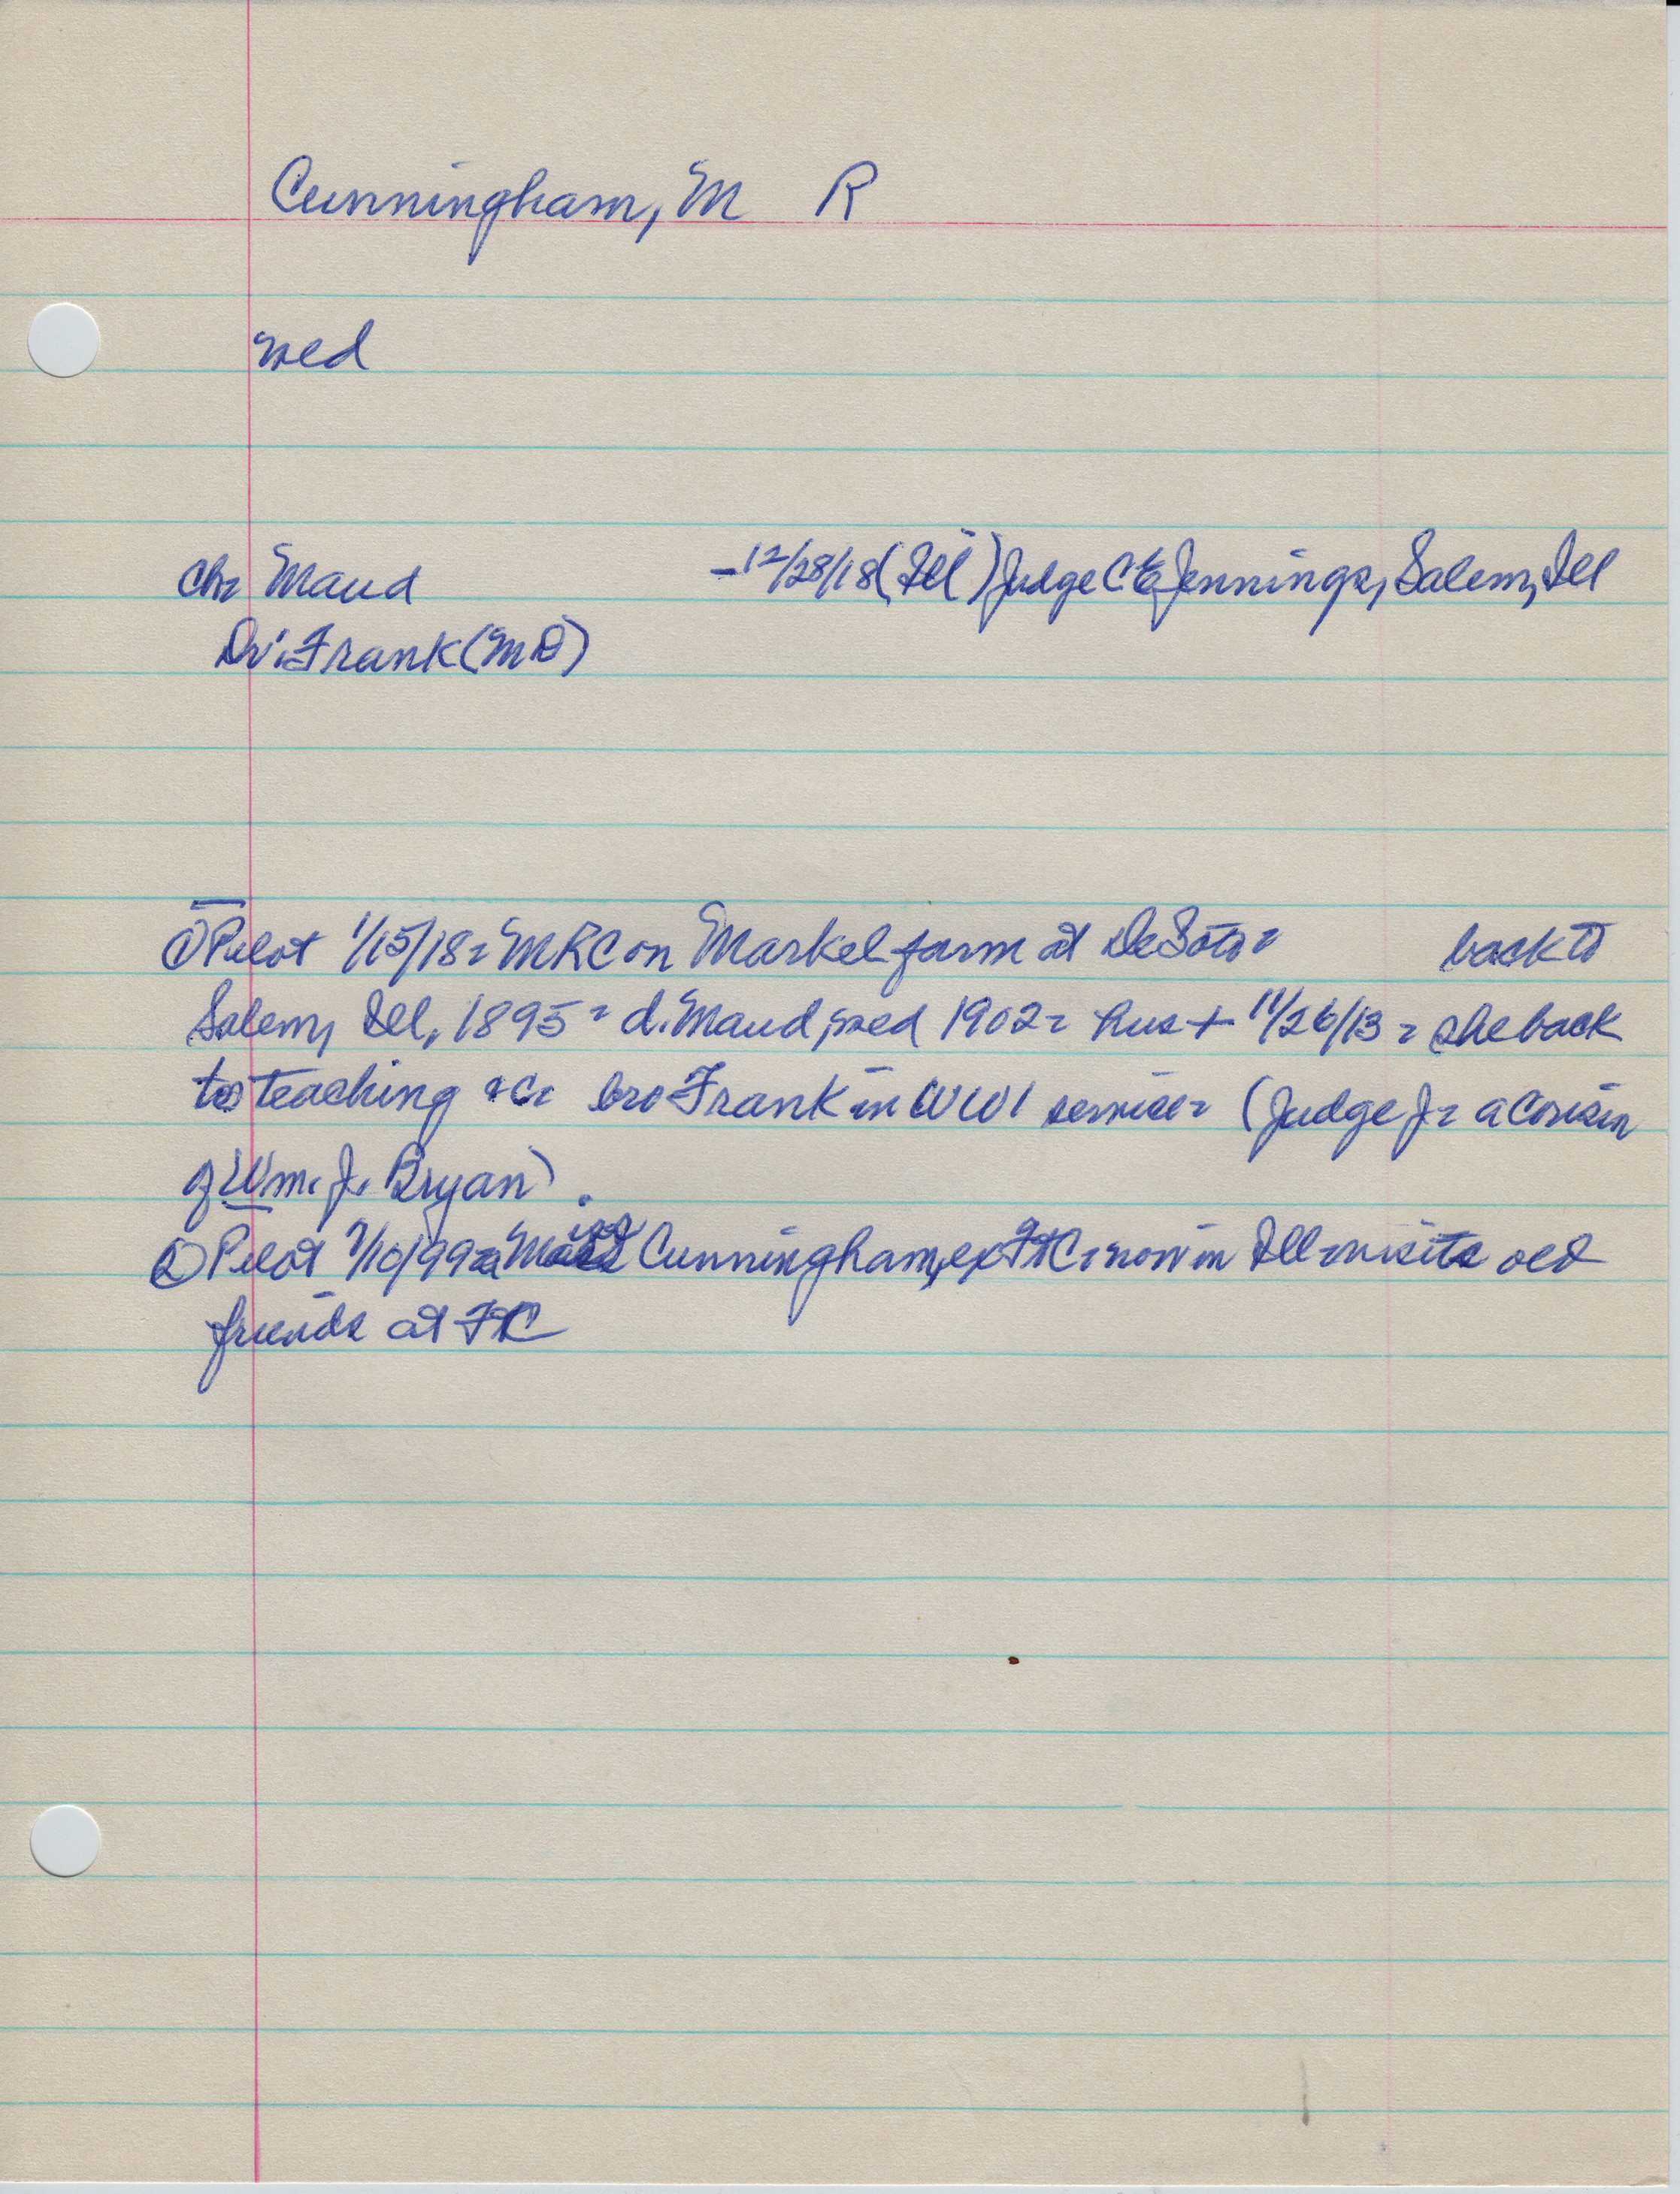 Cunningham, M R
wed
Ch= Maud -12/28/18 (Ill) Judge C E Jennings, Salem, Ill
Dr. Frank (MD)
① Pilot 1/15/18= MRC on Markel farm at DeSoto= back to
Salem, Ill, 1895= d. Maud, wed 1902= hus + 11/26/13= she back
to teaching &c= bro Frank in WWI service= (Judge J= a cousin
of Wm. J. Bryan).
② Pilot 7/10/99= Miss Cunningham, ex FtC= now in Ill= visits old
friends at FtC